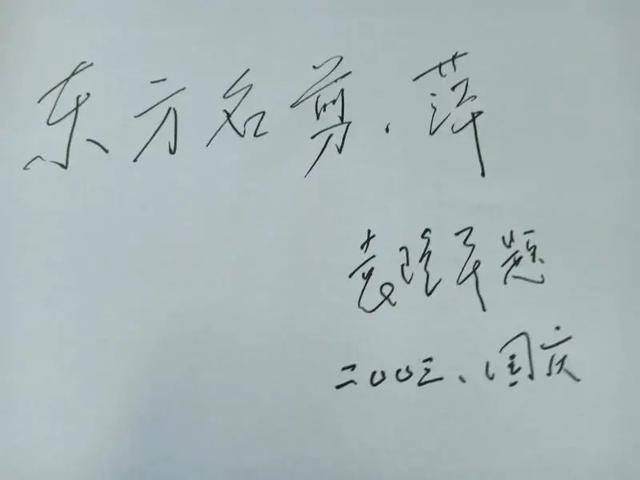 东方名剪.萍
袁隆平题
二00三、国庆